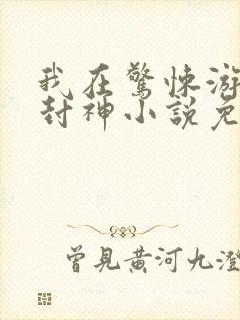 我在驚悚游
封神小說免
曾見黃河九澄